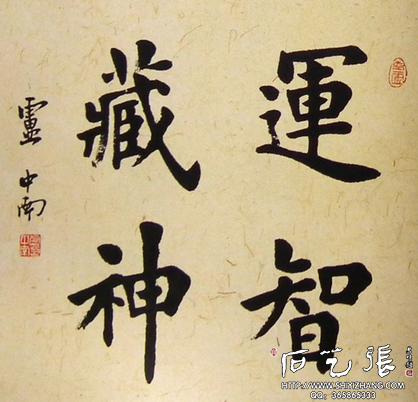 運智
藏神
盧中南
石艺張
HTTP://WWW.SHIYIZHANG.COM
QQ: 365865033